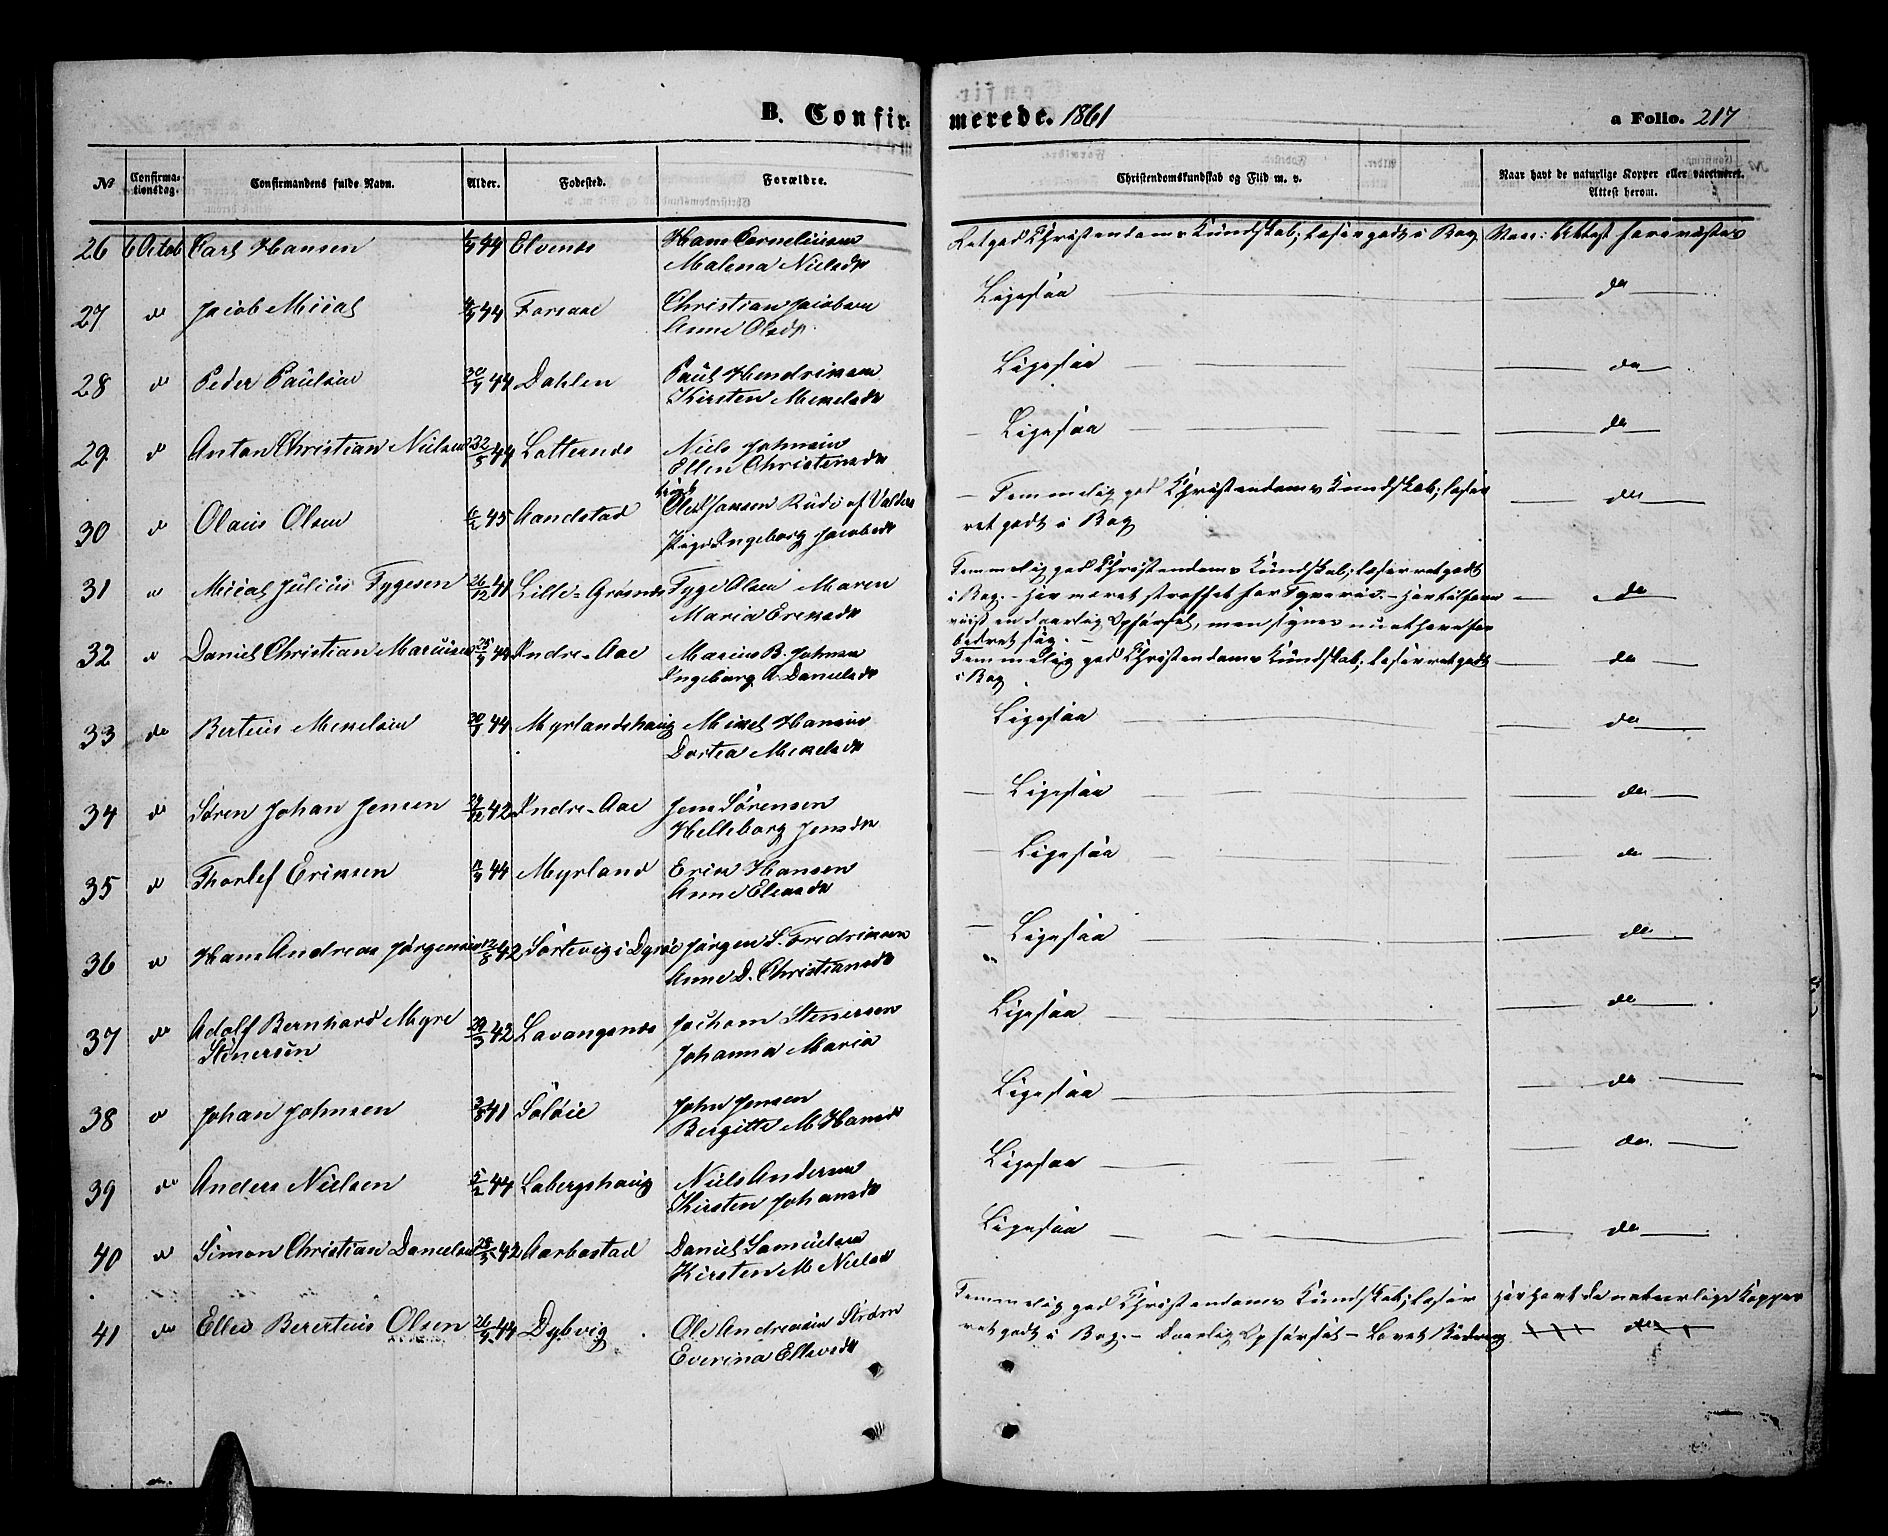 B. Confirmerede. 1861
a Folio. 217
No
Confirmationsdag.
Confirmandens fulde Navn.
Alder.
Fødested.
Forældre.
Christendomskundskab og Flid m. v.
Naar havt de naturlige Kopper eller vaccineret. Attest herom.
26 6 Octob Carl Hansen 44 Elvenes Hans Corneliusen Malena Nielsdr
Ret god Christendoms Kundskab; læser godt i Bog. Vacc: Attest forevistes
27 do Jacob Micial 44 Forsaae Christian Jacobsen Anne Olsdr
Ligesaa do
28 do Peder Paulsen 44 Dahlen Paul Hendriksen Kirsten Mikelsdr
Ligesaa do
29 do Anton Christian Nielsen 44 Lotternes Niels Johnsen Ellen Christensdr
Ligesaa do
30 do Olaus Olsen 45 Aandstad Ole Hansen Rude af Valders Pige Ingeborg Jacobsdr
Temmelig god Christendoms Kundskab; læser ret godt i Bog do
31 do Micial Julius Tygesen 26/12 41 Lille-Grøsnes Tyge Olsen Maren Maria Eriksdr
Temmelig god Christendoms Kundskab; læser ret godt i Bog. - Har været straffet for Tyverie. - Har tilforn viist en daarlig Opførsel, men synes nu at have forbedret sig. - do
32 do Daniel Christian Mariusen 44 Indre-Aae Marius B. Johnsen Ingeborg A Danielsdr
Temmelig god Christendoms Kundskab; læser ret godt i Bog do
33 do Bertius Mikelsen 44 Myrlandshaug Mikel Hansen Dortea Mikelsdr
Ligesaa do
34 do Søren Johan Jensen 42 Indre-Aae Jens Sørensen Helleborg Jensdr
Ligesaa do
35 do Thorlef Eriksen 44 Myrland Erik Hansen Anne Eliasdr
Ligesaa do
36 do Hans Andreas Jørgensen 12/8 42 Sørtevig i Dyrøe Jørgen S. Fredriksen Anne D. Christiansdr
Ligesaa do
37 do Adolf Bernhard Myre Stenersen 29/3 42 Lavangsnes Jochom Stenersen Johanna Maria
Ligesaa do
38 do Johan Johnsen 3/8 41 Søløie John Jensen Bergitte M Hansdr
Ligesaa do
39 do Anders Nielsen 5/2 44 Labergshaug Niels Andersen Kirsten Johansdr
Ligesaa do
40 do Simon Christian Danielsen 28/3 42 Aarbostad Daniel Samuelsen Kirsten M Nielsd
Ligesaa do
41 do Elled Berertius Olsen 44 Dybvig Ole Andreasen Strøm Everina Ellevsdr
Temmelig god Christendoms Kundskab; læser ret godt i Bog. - Daarlig Opførsel - Lovet Bedring Har havt de naturlige Kopper do